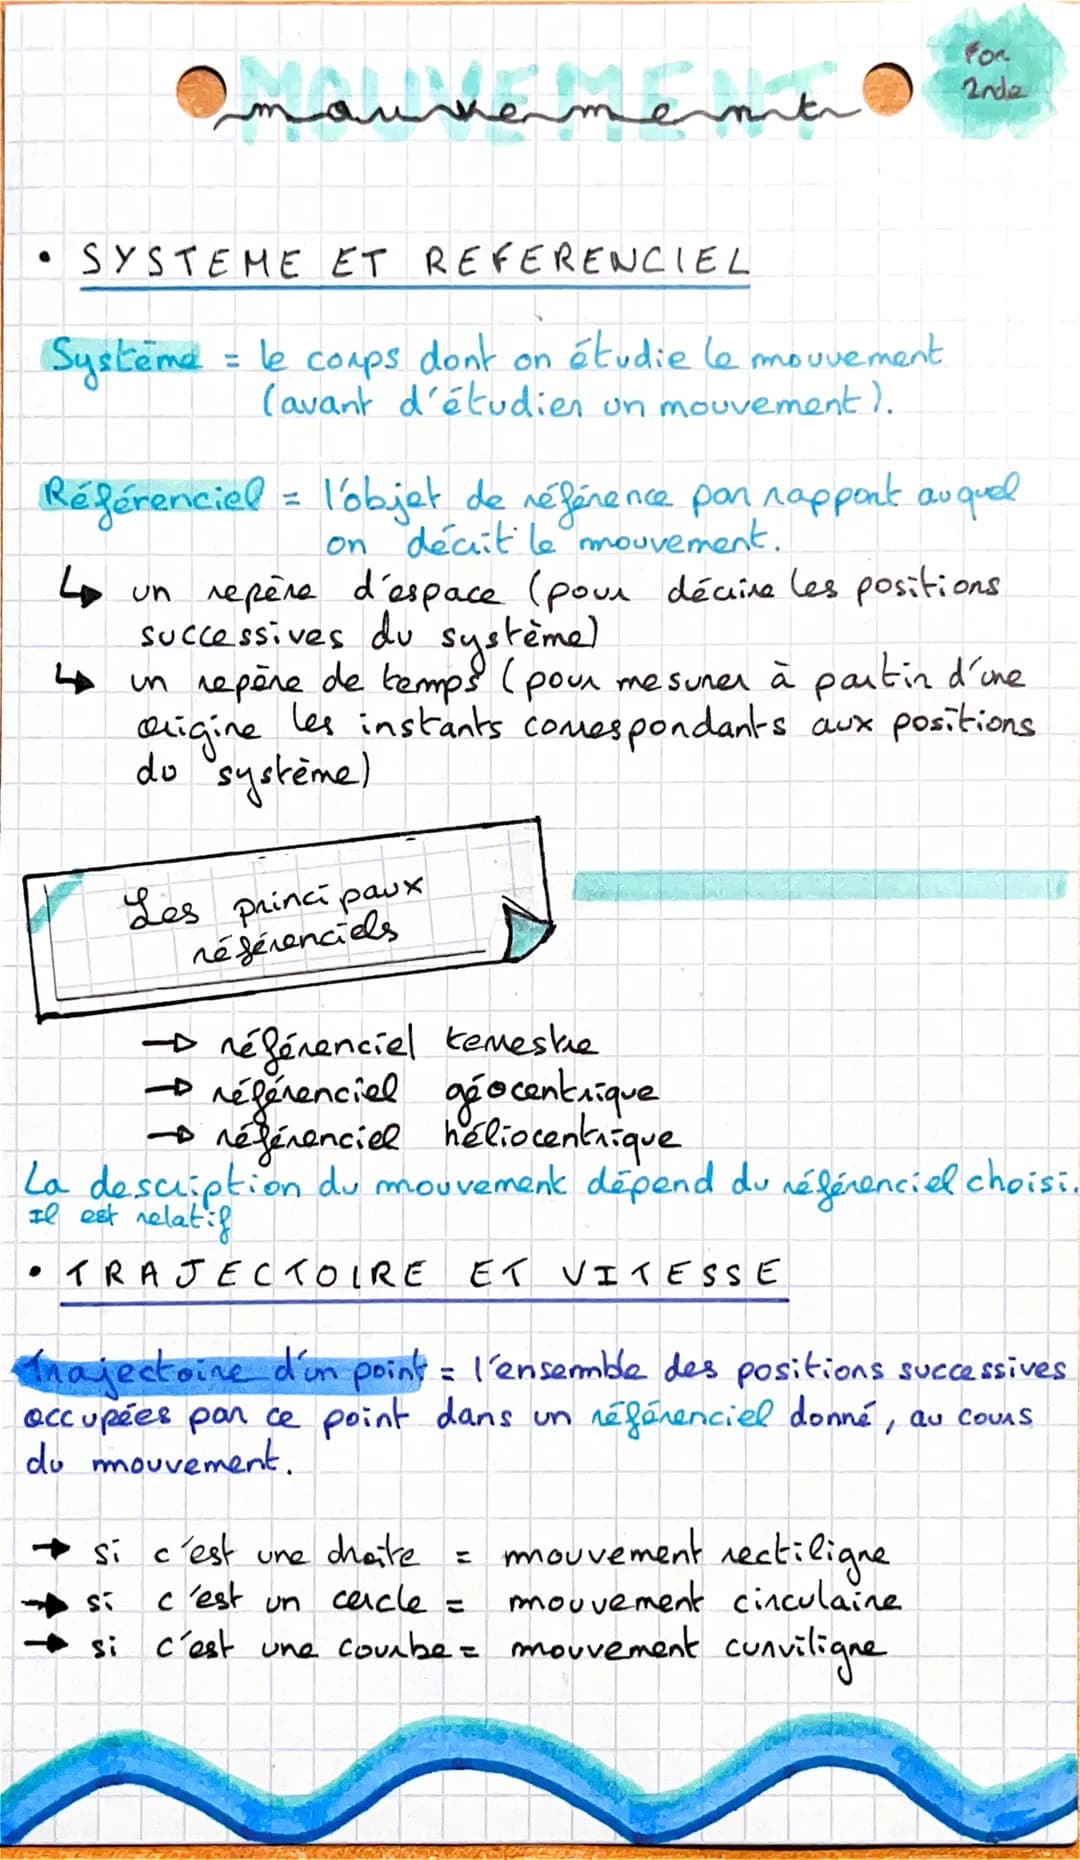 MOUVEMENT
mouvement
For
2nde
• SYSTEME ET REFERENCIEL
Système = le corps dont on étudie le mouvement
(avant d'étudier un mouvement).
Référenciel = l'objet de référence par rapport auquel
on décrit le mouvement.
↳ un repère d'espace (pour décrire les positions
successives du système)
↳ un repère de temps (pour mesurer à partir d'une
origine les instants correspondants aux positions
du système)
Les principaux
référenciels
→ référenciel terrestre
→ référenciel géocentrique
→ référenciel héliocentrique
La description du mouvement dépend du référenciel choisi.
Il est relatif
• TRAJECTOIRE ET VITESSE
Trajectoire d'un point = l'ensemble des positions successives
occupées par ce point dans un référenciel donné, au cours
du mouvement.
→ si c'est une droite = mouvement rectiligne
→ si c'est un cercle = mouvement circulaire
→ si c'est une courbe = mouvement curviligne